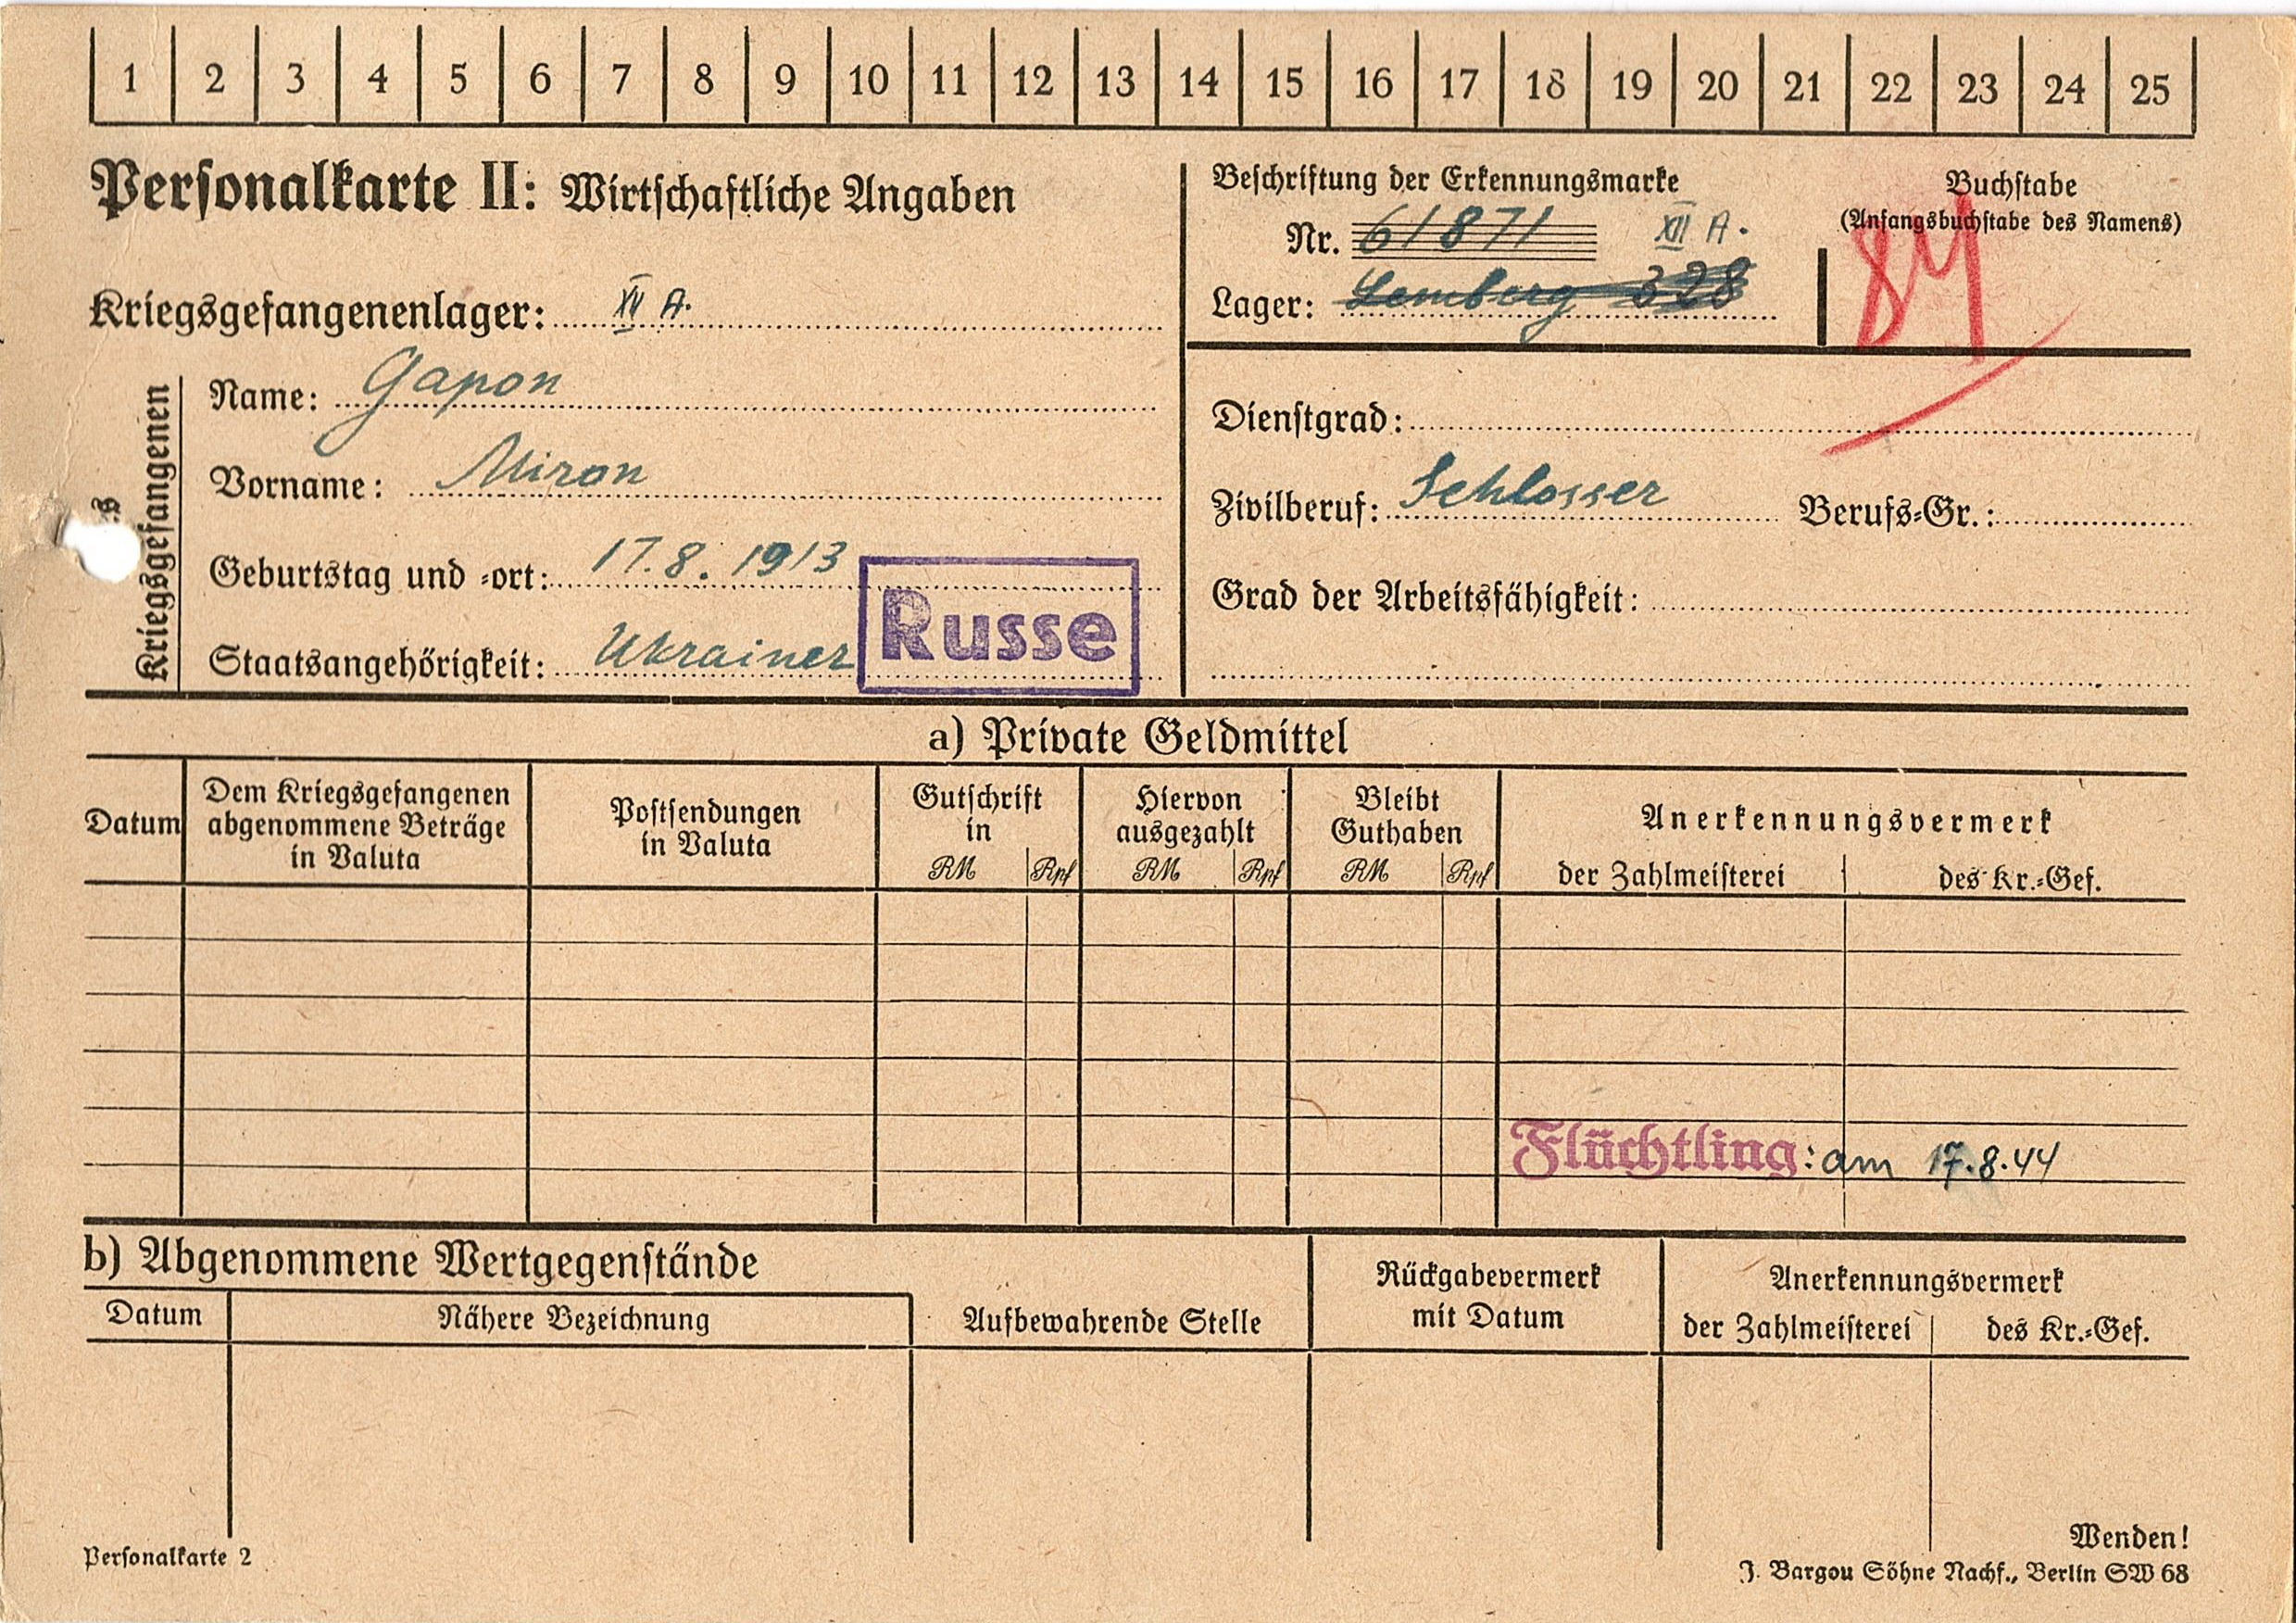 1 2 3 4 5 6 7 8 9 10 11 12 13 14 15 16 17 18 19 20 21 22 23 24 25
Personalkarte II: Wirtschaftliche Angaben
Kriegsgefangenenlager: XII A.
Kriegsgefangenen
Name: Gapon
Vorname: Miron
Geburtstag und -ort: 17.8.1913
Staatsangehörigkeit: Ukrainer
Russe
Beschriftung der Erkennungsmarke
Nr. 61871 XII A.
Lager: Lemberg 328
Buchstabe
(Anfangsbuchstabe des Namens)
Dienstgrad:
Zivilberuf: Schlosser Berufs-Gr.:
Grad der Arbeitsfähigkeit:
a) Private Geldmittel
Datum
Dem Kriegsgefangenen
abgenommene Beträge
in Valuta
Postsendungen
in Valuta
Gutschrift
in
RM Rpf
Hiervon
ausgezahlt
RM Rpf
Bleibt
Guthaben
RM Rpf
Anerkennungsvermerk
der Zahlmeisterei des Kr.-Gef.
Flüchtling: am 17.8.44
b) Abgenommene Wertgegenstände
Datum Nähere Bezeichnung
Aufbewahrende Stelle
Rückgabevermerk
mit Datum
Anerkennungsvermerk
der Zahlmeisterei des Kr.-Gef.
Personalkarte 2
Wenden!
J. Bargou Söhne Nachf., Berlin SW 68